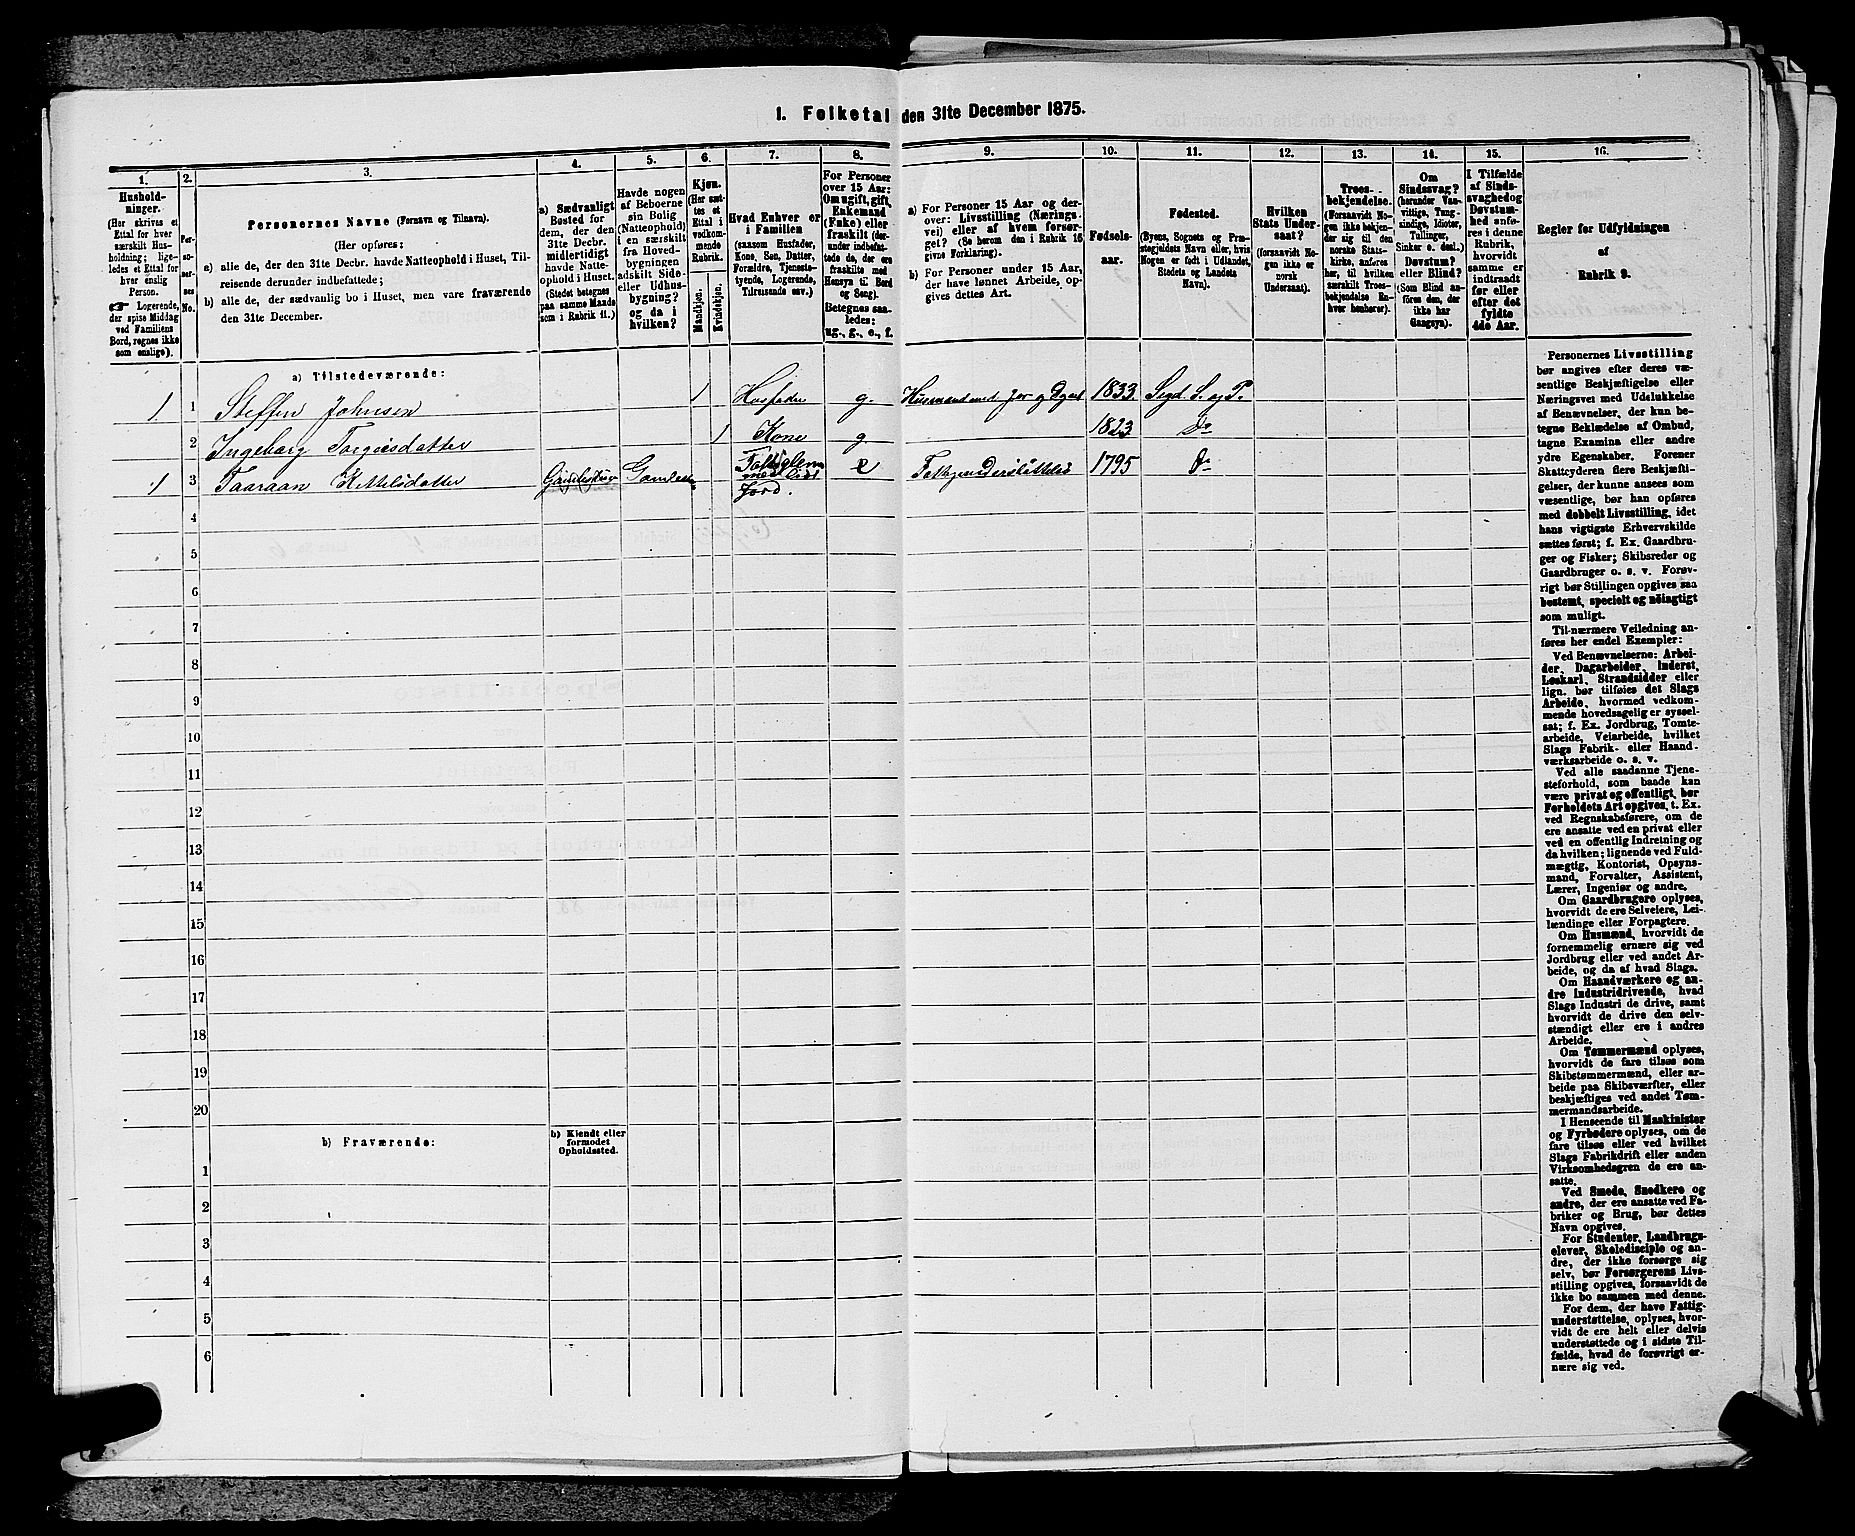 1. Folketal den 31te December 1875.
1. 2. 3. 4. 5. 6. 7. 8. 9. 10. 11. 12. 13. 14. 15. 16.
Hushold-
ninger.
(Her skrives et
Ettal for hver
særskilt Hus-
holdning; lige-
ledes et Ettal for
hver enslig
Person.
☞ Logerende,
der spise Middag
ved Familiens
Bord, regnes ikke
som enslige).
Per-
soner-
nes
No.
Personernes Navne (Fornavn og Tilnavn).
(Her opføres:
a) alle de, der den 31te Decbr. havde Natteophold i Huset, Til-
reisende derunder indbefattede;
b) alle de, der sædvanlig bo i Huset, men vare fraværende
den 31te December.
a) Sædvanligt
Bosted for
dem, der den
31te Decbr.
midlertidigt
havde Natte-
ophold i Huset.
(Stedet betegnes
paa samme Maade
som i Rubrik 11.)
Havde nogen
af Beboerne
sin Bolig
(Natteophold)
i en særskilt
fra Hoved-
bygningen
adskilt Side-
eller Udhus-
bygning?
og da i
hvilken?
Kjøn.
(Her sæt-
tes et
Ettal i
vedkom-
mende
Rubrik.
Mandkjøn.
Kvindekjøn.
Hvad Enhver er
i Familien
(saasom Husfader,
Kone, Søn, Datter,
Forældre, Tjeneste-
tyende, Logerende,
Tilreisende osv.)
For Personer
over 15 Aar:
Om ugift, gift,
Enkemand
(Enke) eller
fraskilt (der-
under indbefat-
tede de, der ere
fraskilte med
Hensyn til Bord
og Seng).
Betegnes saa-
ledes:
ug., g., e., f.
a) For Personer 15 Aar og der-
over: Livsstilling (Nærings-
vei) eller af hvem forsør-
get? (Se herom den i Rubrik 16
givne Forklaring).
b) For Personer under 15 Aar,
der have lønnet Arbeide, op-
gives dettes Art.
Fødsels-
aar.
Fødested.
(Byens, Sognets og Præ-
stegjeldets Navn eller, hvis
Nogen er født i Udlandet,
Stedets og Landets
Navn).
Hvilken
Stats Under-
saat?
(forsaavidt No-
gen ikke er
norsk
Undersaat).
Troes-
bekjendelse.
(Forsaavidt No-
gen ikke bekjen-
der sig til den
norske Stats-
kirke, anføres
her, til hvilken
særskilt Troes-
bekjendelse En-
hver henhører).
Om
Sindssvag?
(herunder Van-
vittige, Tung-
sindige, Idioter,
Tullinger,
Sinker o. desl.)
Døvstum?
eller Blind?
(Som Blind an-
føres den, der
ikke har
Gangsyn).
I Tilfælde
af Sinds-
svaghed og
Døvstum-
hed anfø-
res i denne
Rubrik,
hvorvidt
samme er
indtraadt
før eller
efter det
fyldte
4de Aar.
Regler for Udfyldningen
af
Rubrik 9.
a) Tilstedeværende:
1 1 Steffen Johnsen 1 Husfader g. Husmand med Jor 1833 Sogd. S. og P.
2 Ingeborg 1 Kone g 1823 Do
1 3 Taaraan Kittelsdatter e 1795 Do
Jord.
4
5
6
7
8
9
10
11
12
13
14
15
16
17
18
19
20
b) Fraværende:
b) Kjendt eller
formodet
Opholdssted.
1
2
3
4
5
6
Personernes Livsstilling
bør angives efter deres væ-
sentlige Beskjæftigelse eller
Næringsvei med Udelukkelse
af Benævnelser, der kun be-
tegne Beklædelse af Ombud,
tagne Examina eller andre
ydre Egenskaber. Forener
Skatteyderen flere Beskjæfti-
gelser, der kunne ansees som
væsentlige, bør han opføres
med dobbelt Livsstilling, idet
hans vigtigste Erhvervskilde
sættes først; f. Ex. Gaardbru-
ger og Fisker; Skibsreder og
Gaardbruger o. s. v. Forøv-
rigt bør Stillingen opgives saa
bestemt, specielt og nøiagtigt
som muligt.
Til nærmere Veiledning an-
føres her endel Exempler:
Ved Benævnelserne: Arbei-
der, Dagarbeider, Inderst,
Løskarl, Strandsidder eller
lign. bør tilføies det Slags
Arbeide, hvormed vedkom-
mende hovedsagelig er syssel-
sat; f. Ex. Jordbrug, Tomte-
arbeide, Veiarbeide, hvilket
Slags Fabrik- eller Haand-
værksarbeide o. s. v.
Ved alle saadanne Tjene-
steforhold, som baade kan
være privat og offentligt, bør
Forholdets Art opgives, t. Ex.
ved Regnskabsførere, om de
ere ansatte ved en privat eller
ved en offentlig Indretning og
da hvilken; lignende ved Fuld-
mægtig, Kontorist, Opsyns-
mand, Forvalter, Assistent,
Lærer, Ingeniør og andre.
Om Gaardbrugere oplyses,
hvorvidt de ere Selveiere, Lei-
lændinge eller Forpagtere.
Om Husmænd, hvorvidt de
fornemmelig ernære sig ved
Jordbrug eller ved andet Ar-
beide, og da af hvad Slags.
Om Haandværkere og an-
dre industridrivende, hvad
Slags Industri de drive, samt
hvorvidt de drive den selv-
stændigt eller ere i andres
Arbeide.
Om Tømmermænd oplyses,
hvorvidt de fare tilsøs som
Skibstømmermænd, eller ar-
beide paa Skibsværfter, eller
beskjæftiges ved andet Tøm-
mermandsarbeide.
I Henseende til Maskinister
og Fyrbødere oplyses, om de
fare tilsøs eller ved hvilket
Slags Fabrikdrift eller anden
Virksomhedsgren de ere an-
satte.
Ved Smede, Snedkere og
andre, der ere ansatte ved Fa-
briker og Brug, bør dettes
Navn opgives.
For Studenter, Landbrugs-
elever, Skoledisciple og an-
dre, der ikke forsørge sig
selv, bør Forsørgerens Livs-
stilling opgives, forsaavidt de
ikke bo sammen med denne.
For dem, der have Fattig-
understøttelse, oplyses, hvor-
vidt de ere helt eller delvis
understøttede og i sidste Til-
fælde, hvad de forøvrigt er-
nære sig ved.